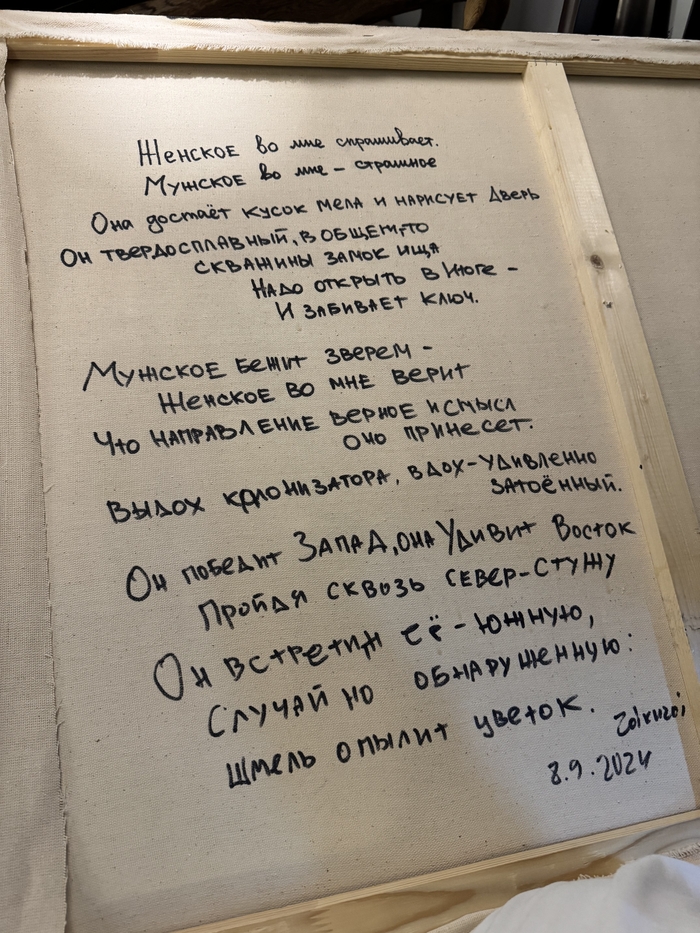 Женское во мне спрашивает.
Мужское во мне – страшное
Она достаёт кусок мела и нарисует Дверь
Он твердосплавный, в общем, то
скважины замок ища
Надо открыть в Итоге –
И забивает ключ.
Мужское бежит зверем –
Женское во мне верит
Что направление верное и смысл
оно принесет.
Выдох колонизатора, вдох-удивленно
затоённый.
Он победит Запад, она Удивит Восток
Пройдя сквозь север-стужу
Он встретит её – южную,
Случайно обнаруженную:
Шмель опылит цветок.
8.9.2024